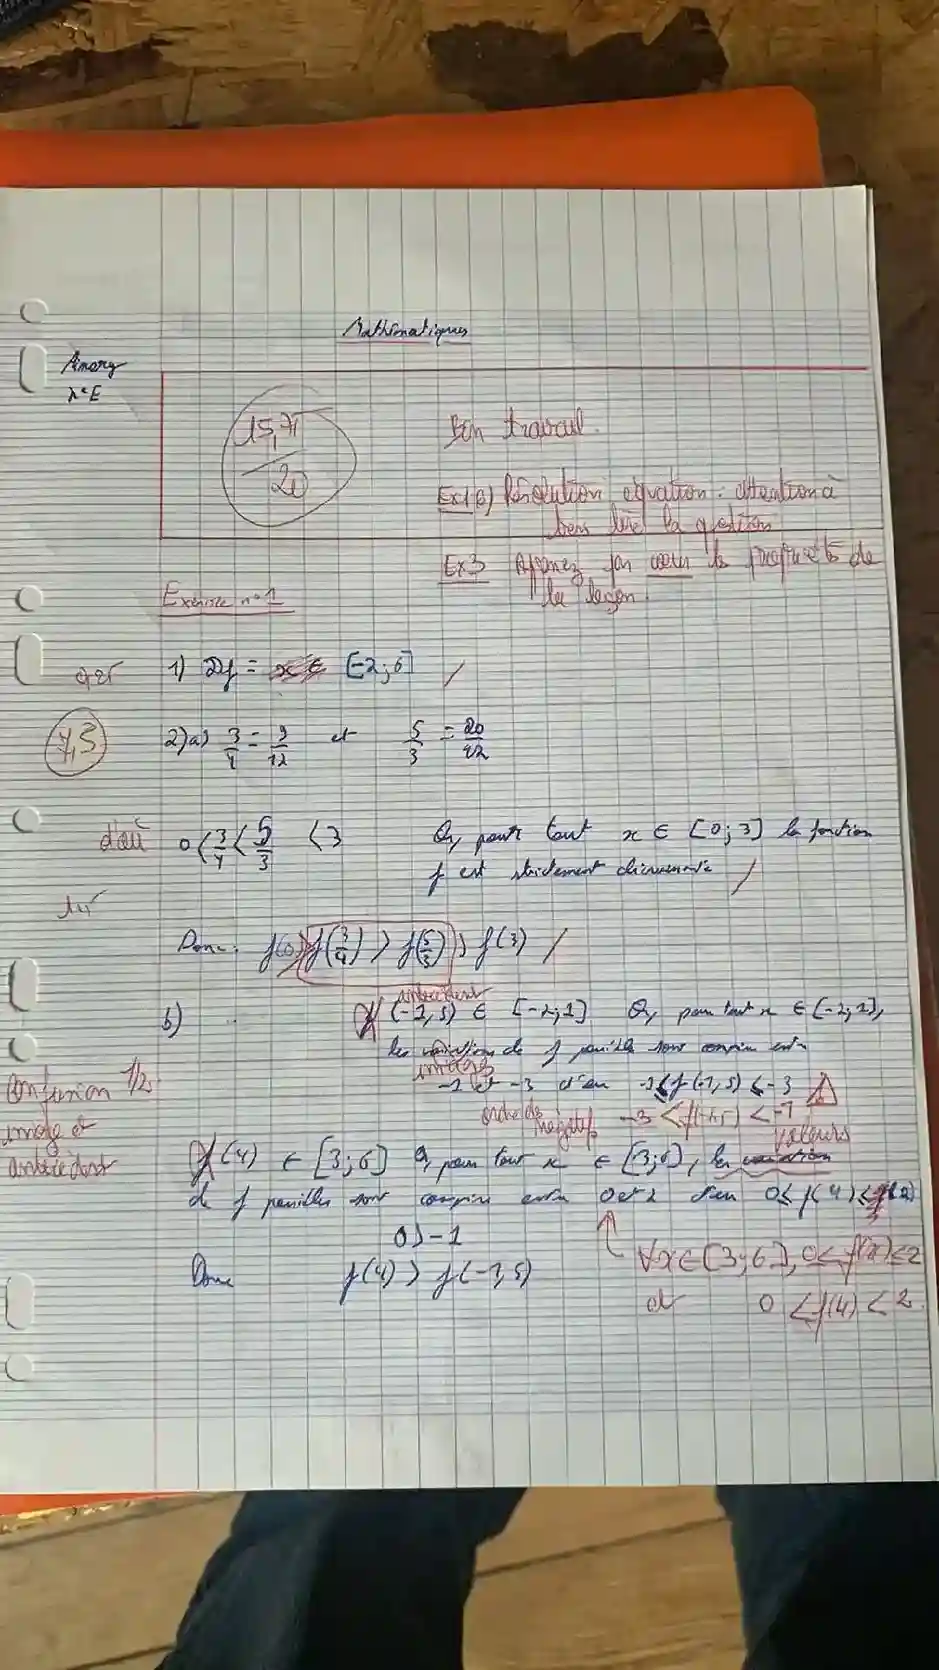 Mathématiques
Amory
15,75
20
Bon travail.
Ex1 6) Résolution équation : attention à
bien lire la question
Ex3 Apprenez par cœur les propriétés de
la leçon.
Exercice n°1
0,25
1) Df = [-2;6]
7,5
2)a) 3/4 = 9/12 et 5/3 = 20/12
d'où
0 < 3/4 < 5/3 < 3 Or, pour tout x ∈ [0;3] la fonction
f est strictement décroissante
1,5
Donc: f(0) > f(3/4) > f(5/3) > f(3)
antécédent
b) (-1,5) ∈ [-2;1] Or, pour tout x ∈ [-2;1],
les variations de f sont compris entre
images
-1 et -3 d'où -1 ≤ f(-1,5) ≤ -3
ordre des négatifs -3 < f(-1,5) < -1
Confusion 1/2
image et
antécédent
valeurs
f(4) ∈ [3;6] Or, pour tout x ∈ [3;6], les variations
de f sont compris entre 0 et 2 d'où 0 ≤ f(4) ≤
0 > -1
∀x ∈ [3;6], 0 ≤ f(x) ≤ 2
Donc f(4) > f(-1,5)
et 0 < f(4) < 2